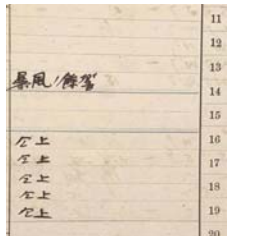 11
12
13
暴風ノ餘
14
15
16
仝上
17
仝上
18
仝上
仝上
19
仝上
20